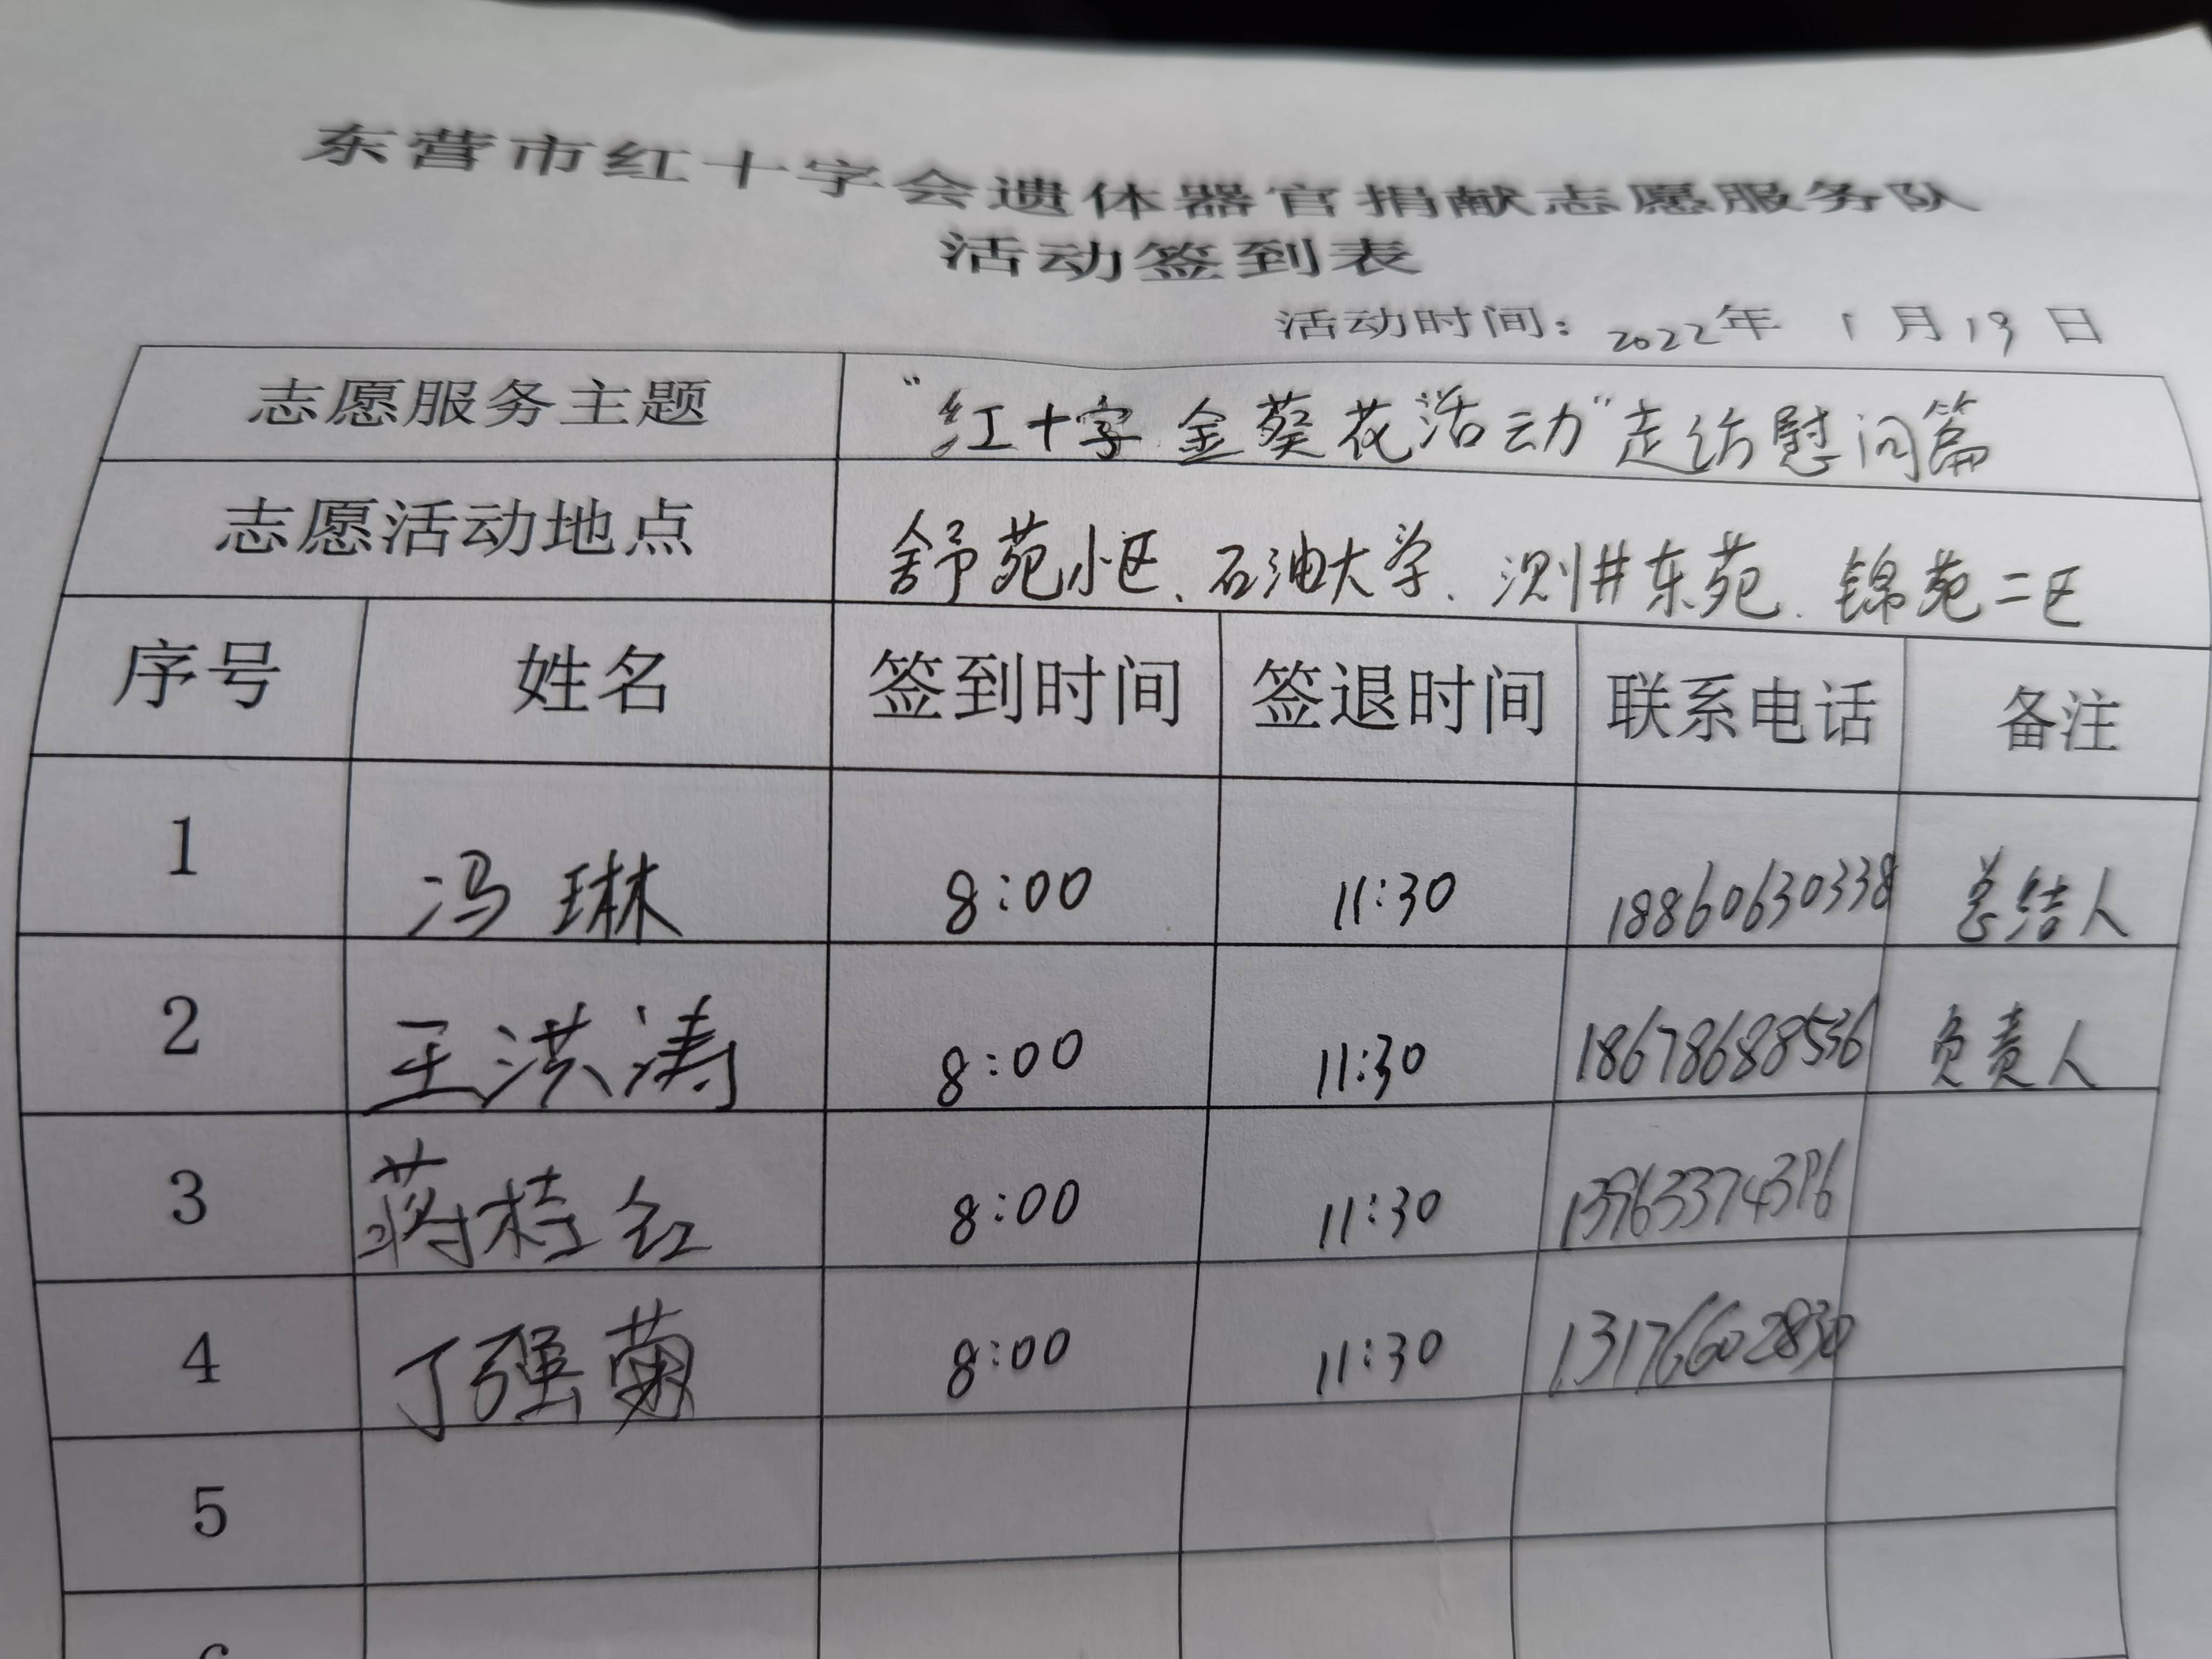 东营市红十字会遗体器官捐献志愿服务队
活动签到表
活动时间：2022年 1月19日
志愿服务主题 “红十字 金葵花活动”走访慰问篇
志愿活动地点 舒苑小区、石油大学、测井东苑、锦苑二区
序号 姓名 签到时间 签退时间 联系电话 备注
1 冯琳 8:00 11:30 18860630338 总结人
2 王洪涛 8:00 11:30 18678688536 负责人
3 蒋桂红 8:00 11:30
4 丁强菊 8:00 11:30 13176602830
5